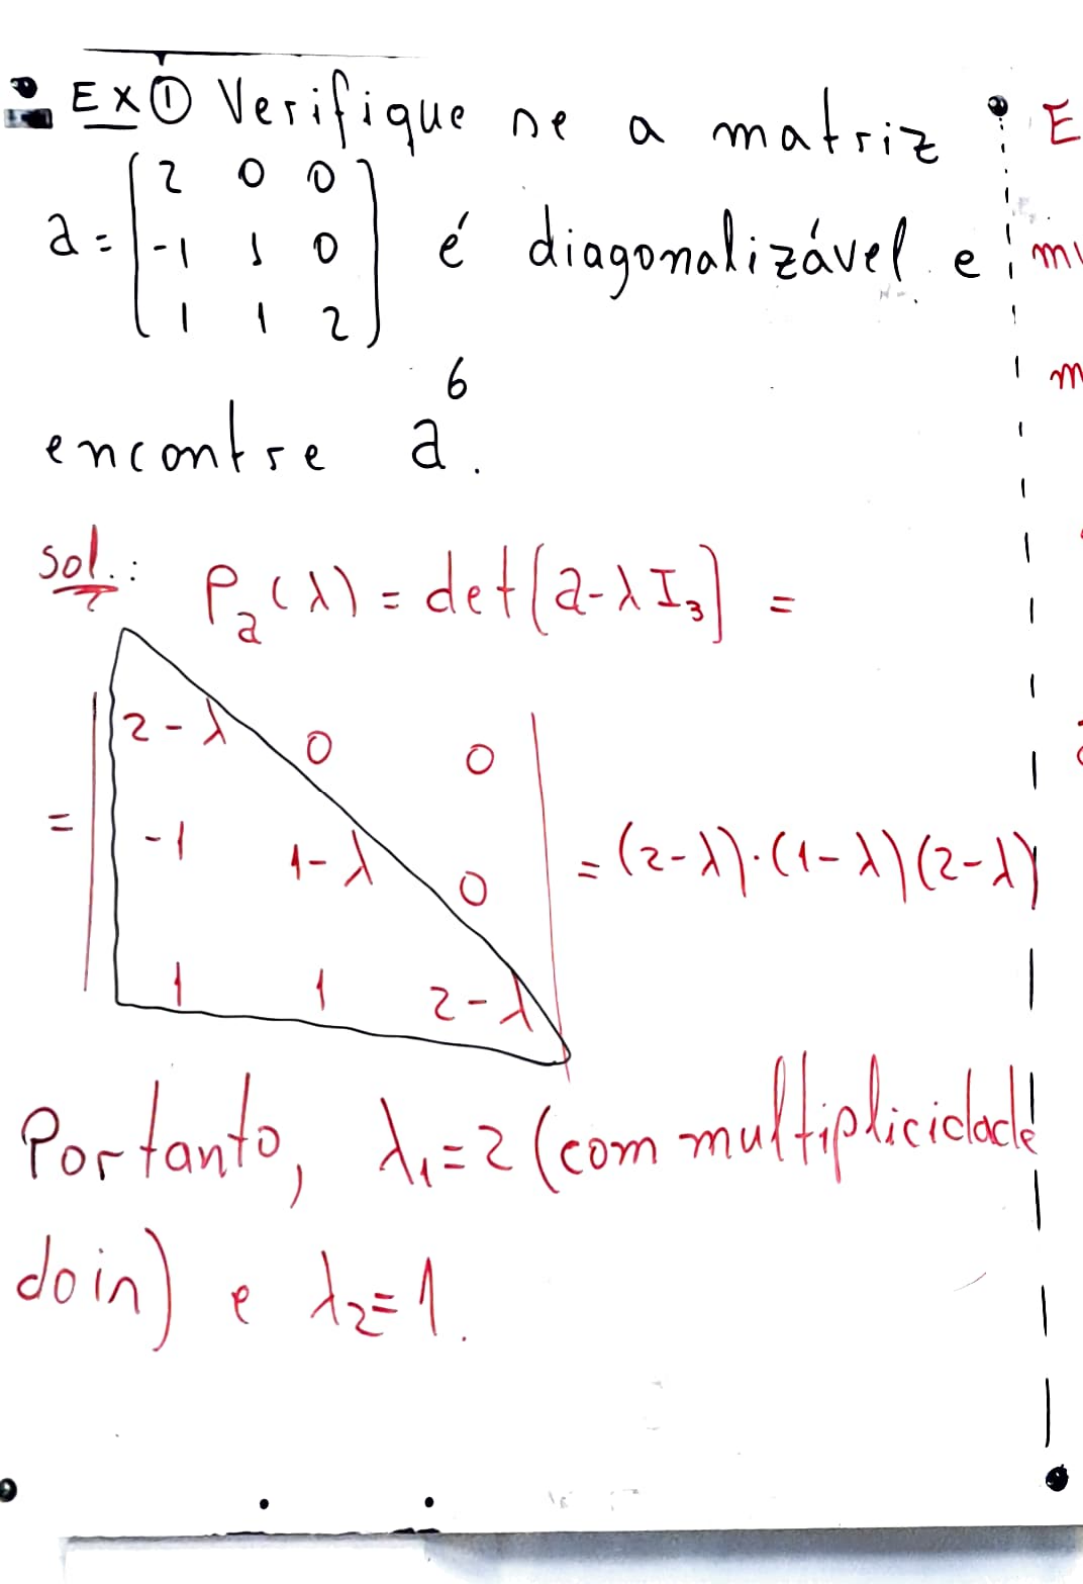 Ex① Verifique se a matriz
a = [2 0 0
-1 1 0
1 1 2] é diagonalizável e
encontre a⁶.
sol.: Pₐ(λ) = det[a-λI₃] =
= |2-λ 0 0
-1 1-λ 0
1 1 2-λ| = (2-λ)·(1-λ)(2-λ)
Portanto, λ₁=2 (com multiplicidade
dois) e λ₂=1.
E
m